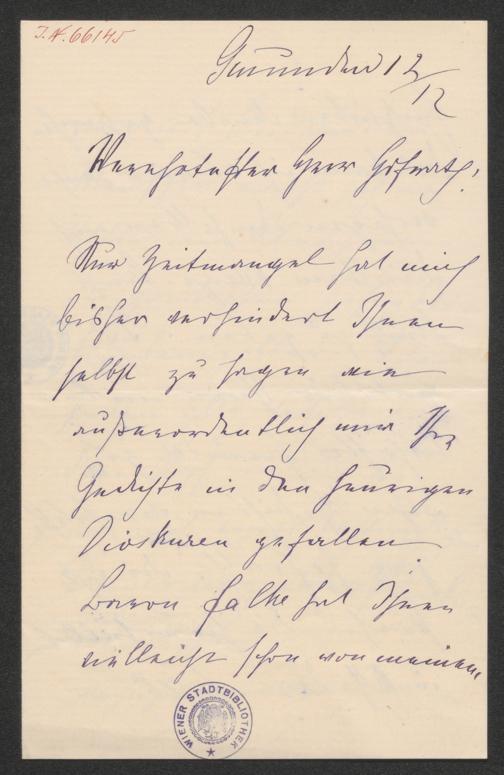 I.N. 66145
Gmunden 12/12
Verehrtester Herr Hofrath,
Nur Zeitmangel hat mich
bisher verhindert Ihnen
selbst zu sagen wie
außerordentlich mir Ihre
Gedichte in den heurigen
Dioskuren gefallen
Baron Falke hat Ihnen
vielleicht schon von meinem
WIENER STADTBIBLIOTHEK